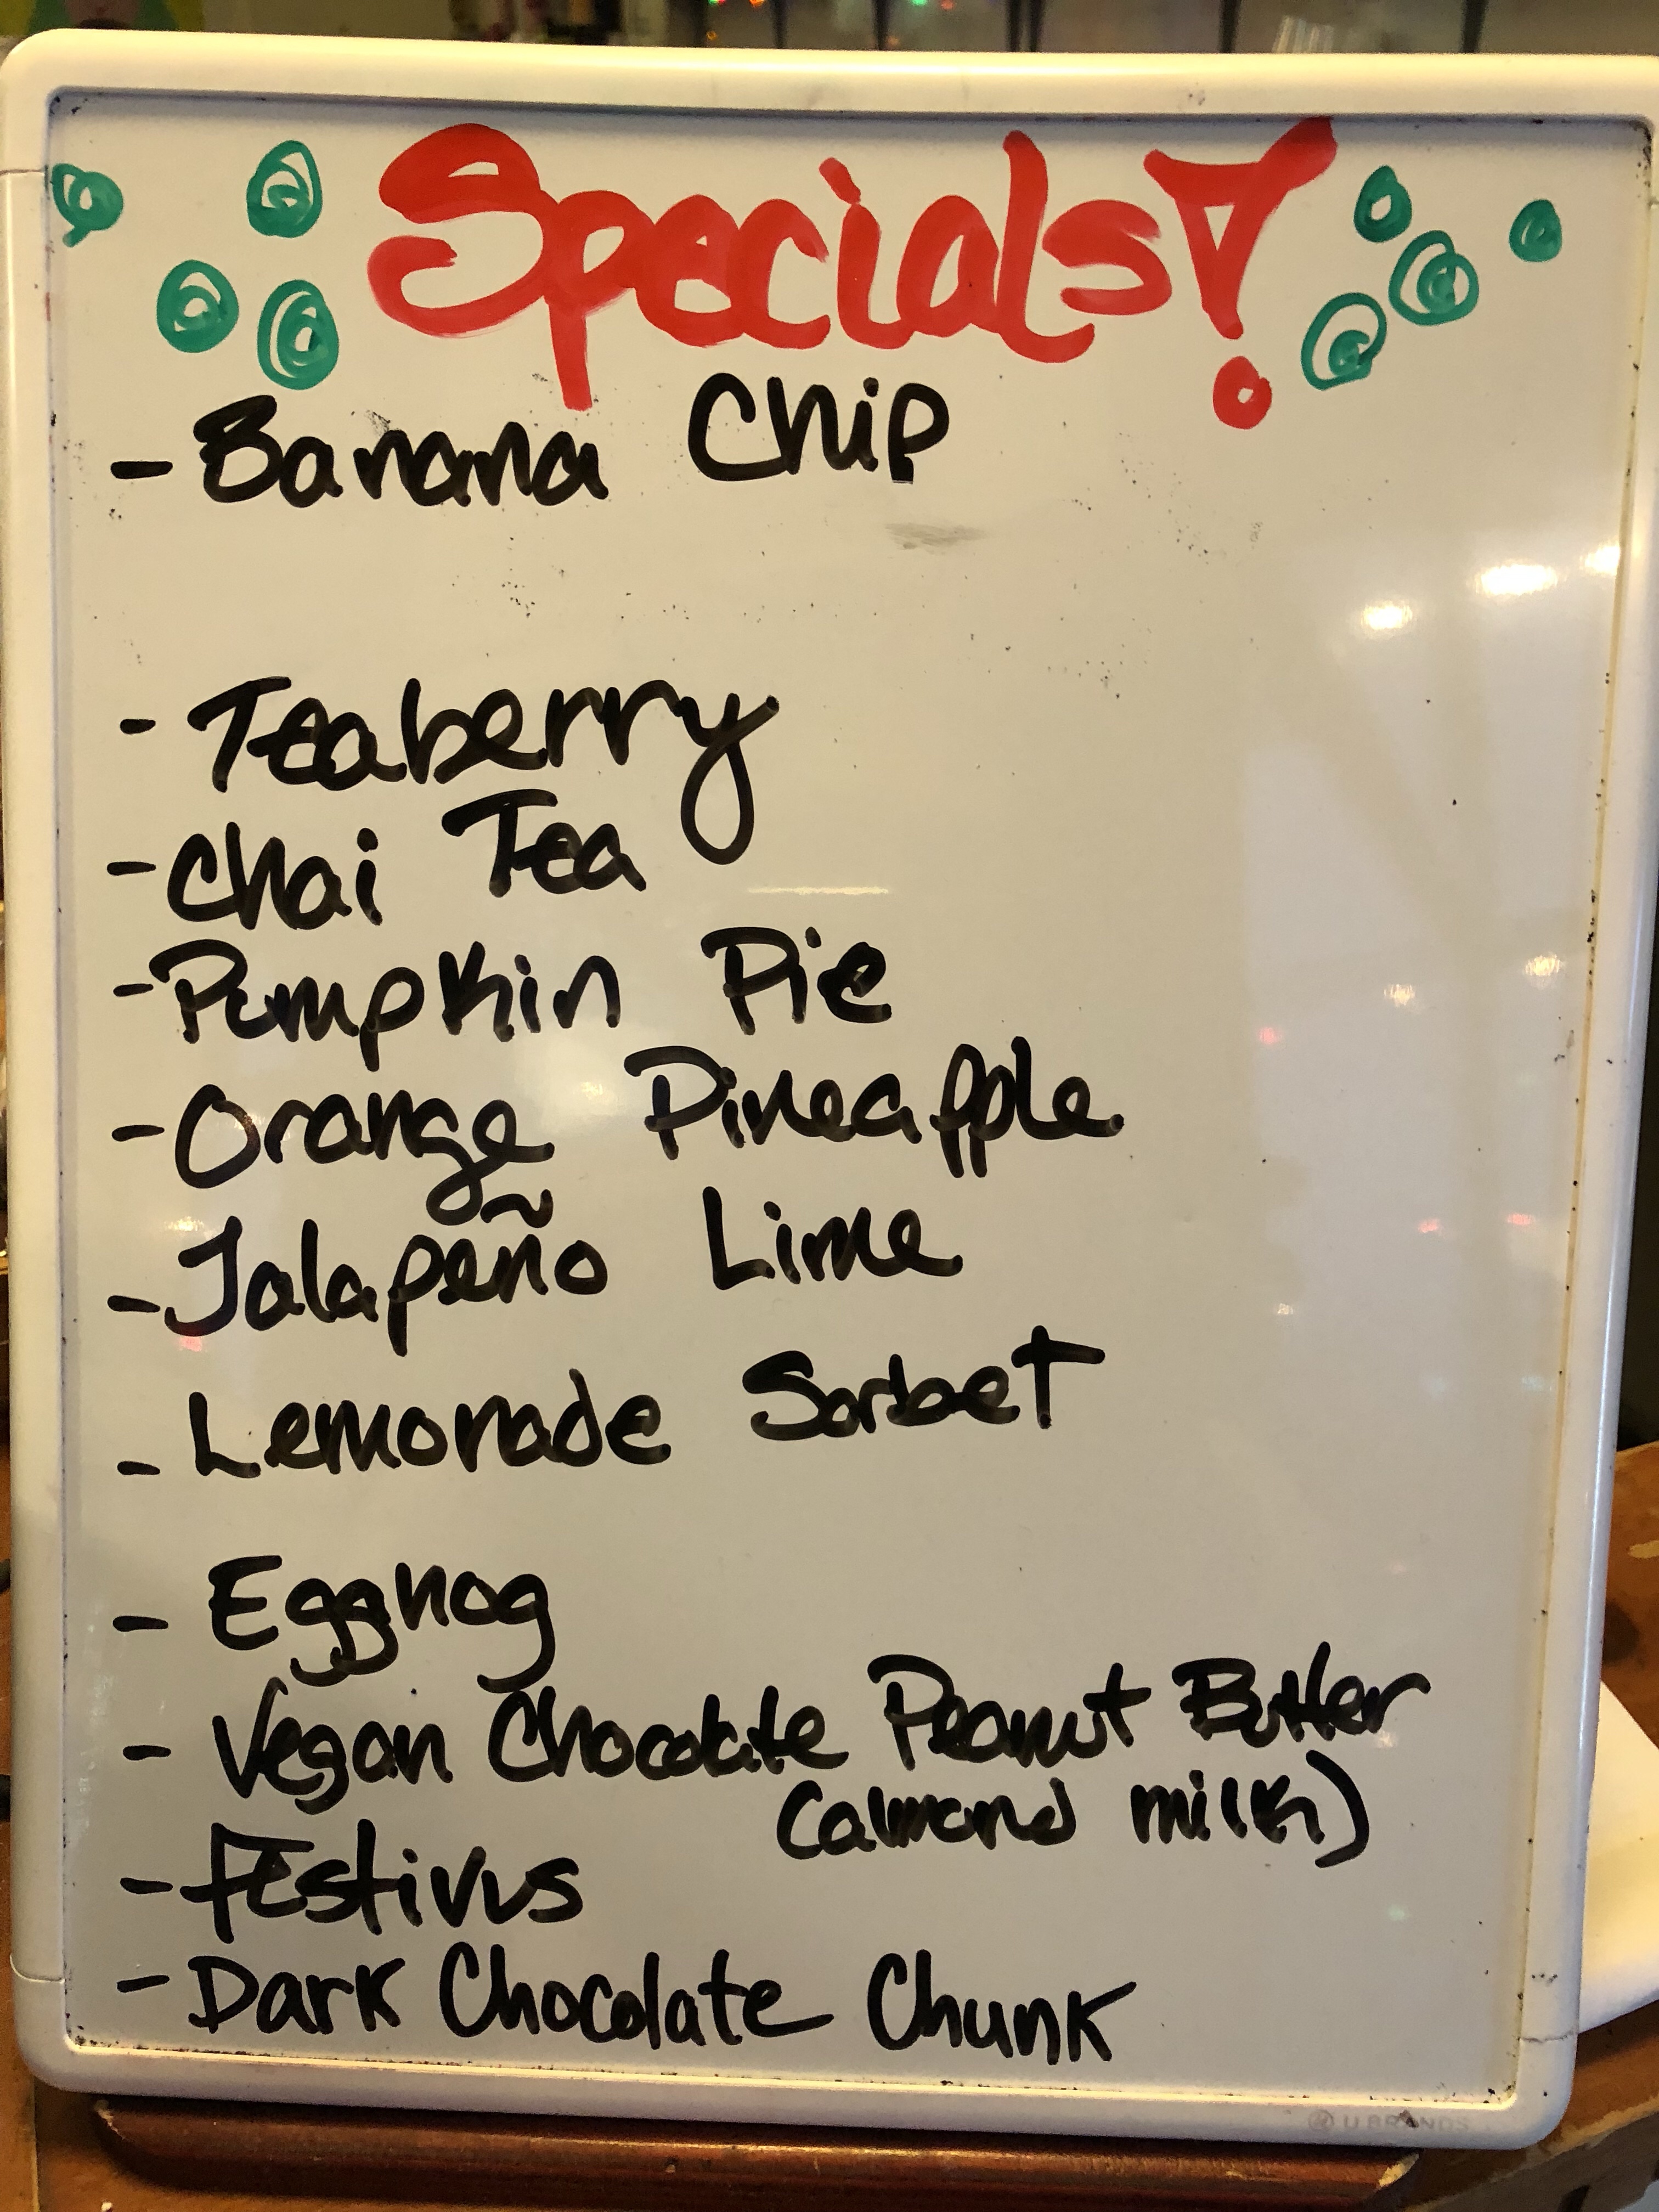 Specials!
- Banana Chip
- Teaberry
- Chai Tea
- Pumpkin Pie
- Orange Pineapple
- Jalapeño Lime
- Lemonade Sorbet
- Eggnog
- Vegan Chocolate Peanut Butter
(almond milk)
- Festivus
- Dark Chocolate Chunk
U BRANDS